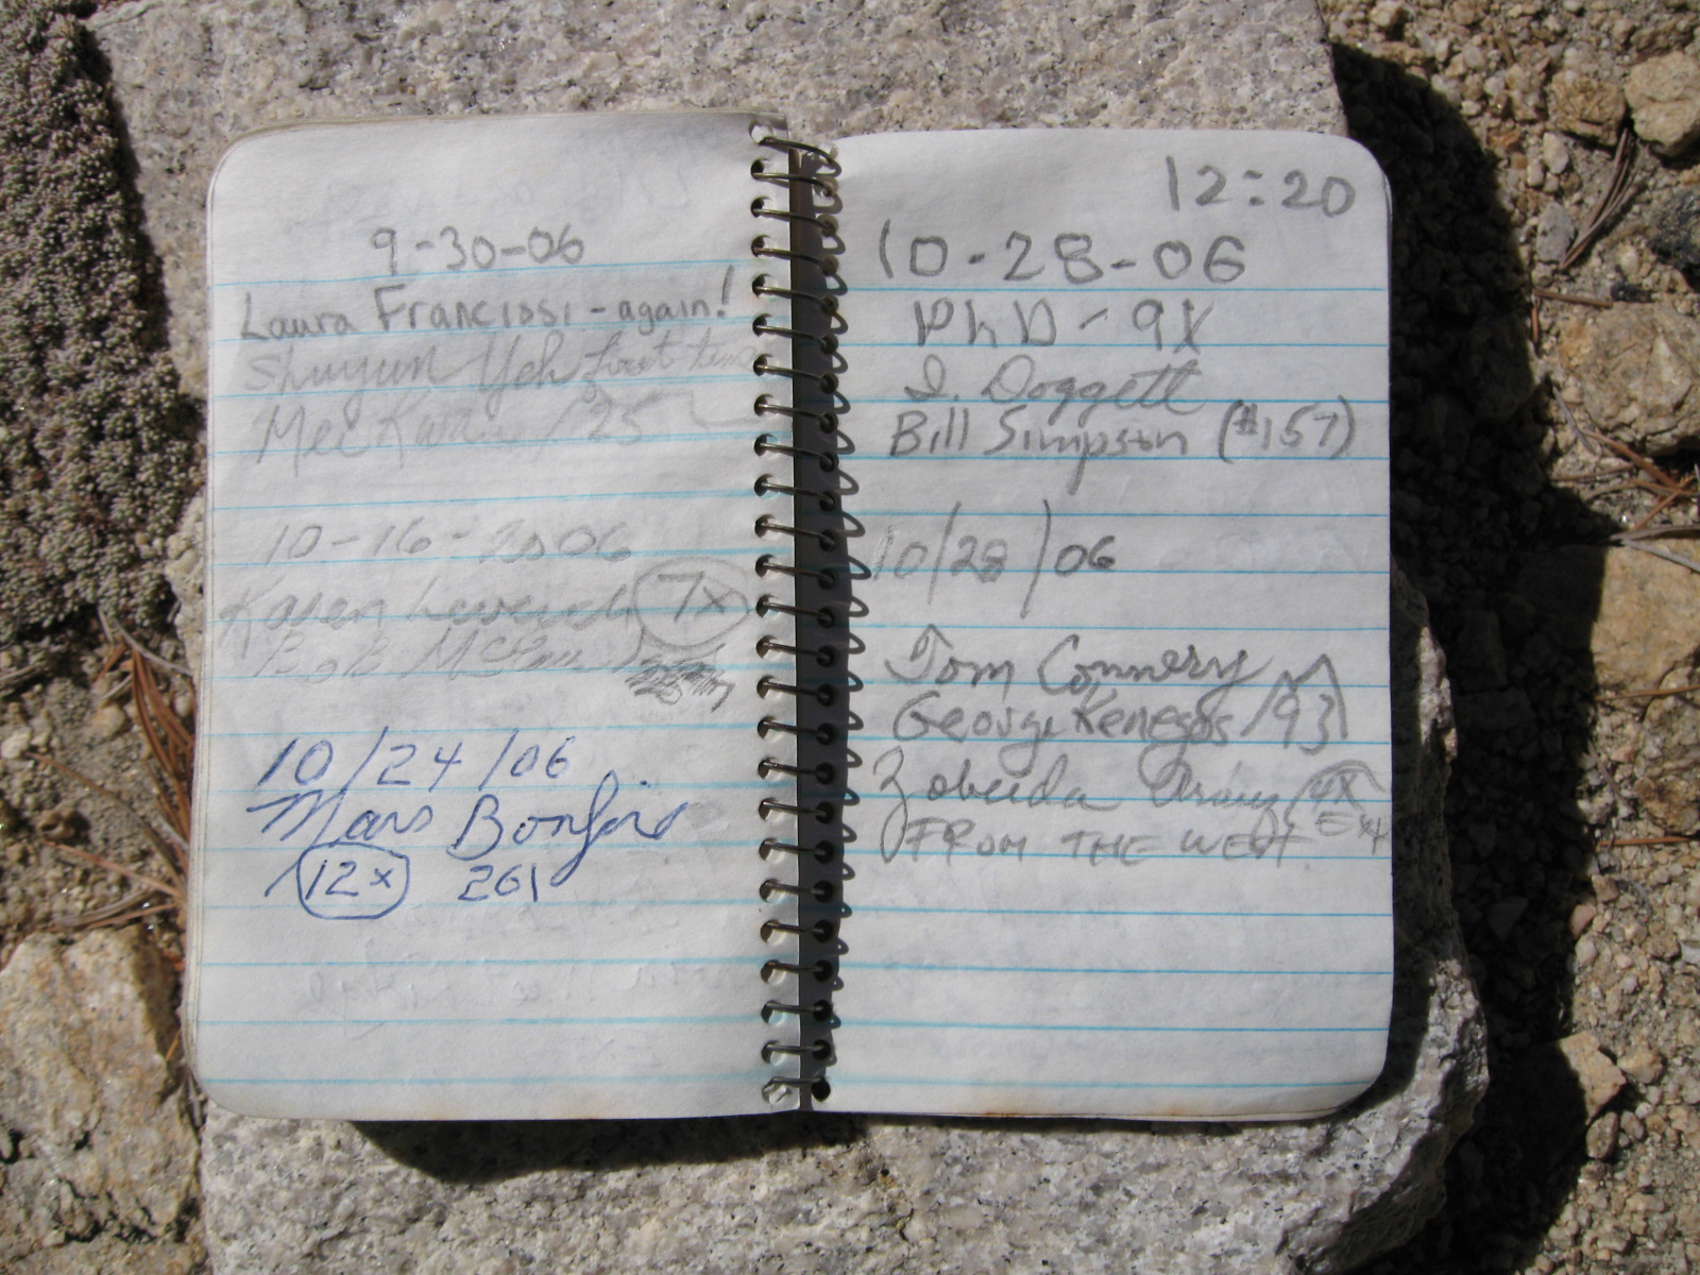 9-30-06
Laura Francissi - again!
Shuyun Yeh first time
Mei /25
10-16-2006
Karen Leverich 7x
Bob
10/24/06
Mars Bonfire
12x 261
12:20
10-28-06
PhD - 9X
I. Doggett
Bill Simpson (#157)
10/28/06
Tom Connery
George Kenegos /93
Zobeida 4X
FROM THE WEST